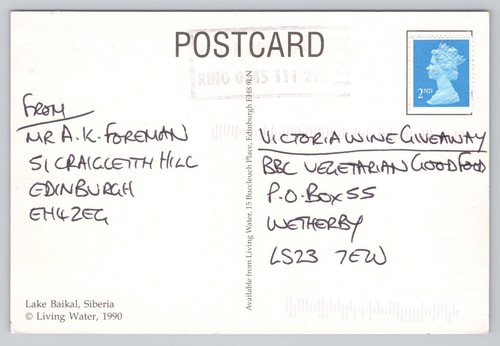 POSTCARD
RING 0345 111
2ND
FROM
MR A.K. FOREMAN
51 CRAIGLEITH HILL
EDINBURGH
EH4 2EG
VICTORIA WINE GIVEAWAY
BBC VEGETARIAN GOOD FOOD
P.O. BOX 55
WETHERBY
LS23 7EW
Available from Living Water, 15 Buccleuch Place, Edinburgh EH8 9LN
Lake Baikal, Siberia
© Living Water, 1990